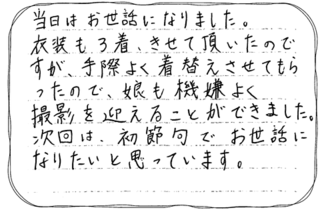 当日はお世話になりました。
衣装も3着、きせて頂いたので
すが、手際よく着替えさせてもら
ったので、娘も機嫌よく
撮影を迎えることができました。
次回は、初節句でお世話に
なりたいと思っています。